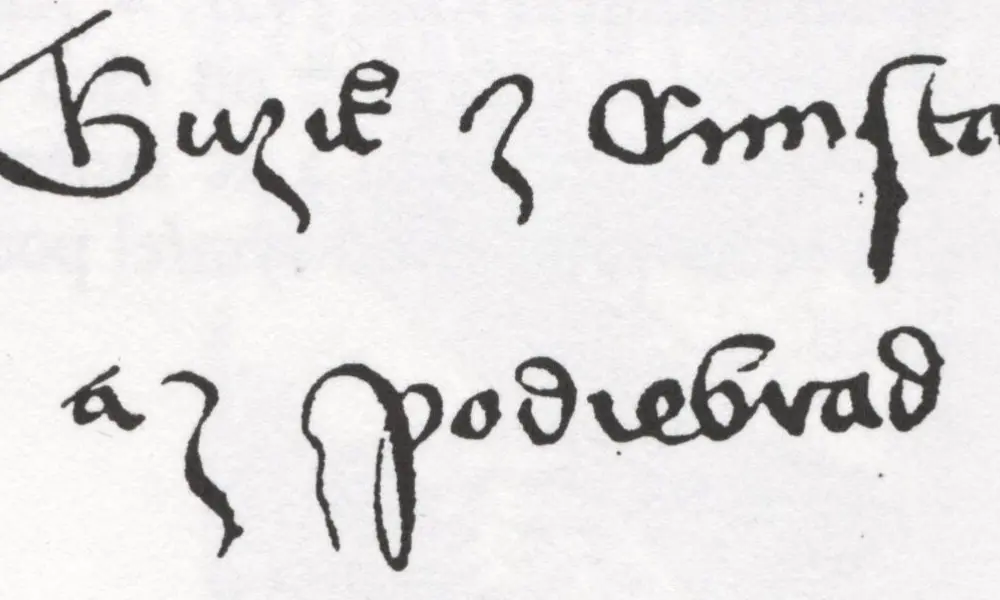 Girzik z Cunsta
a z Podiebrad